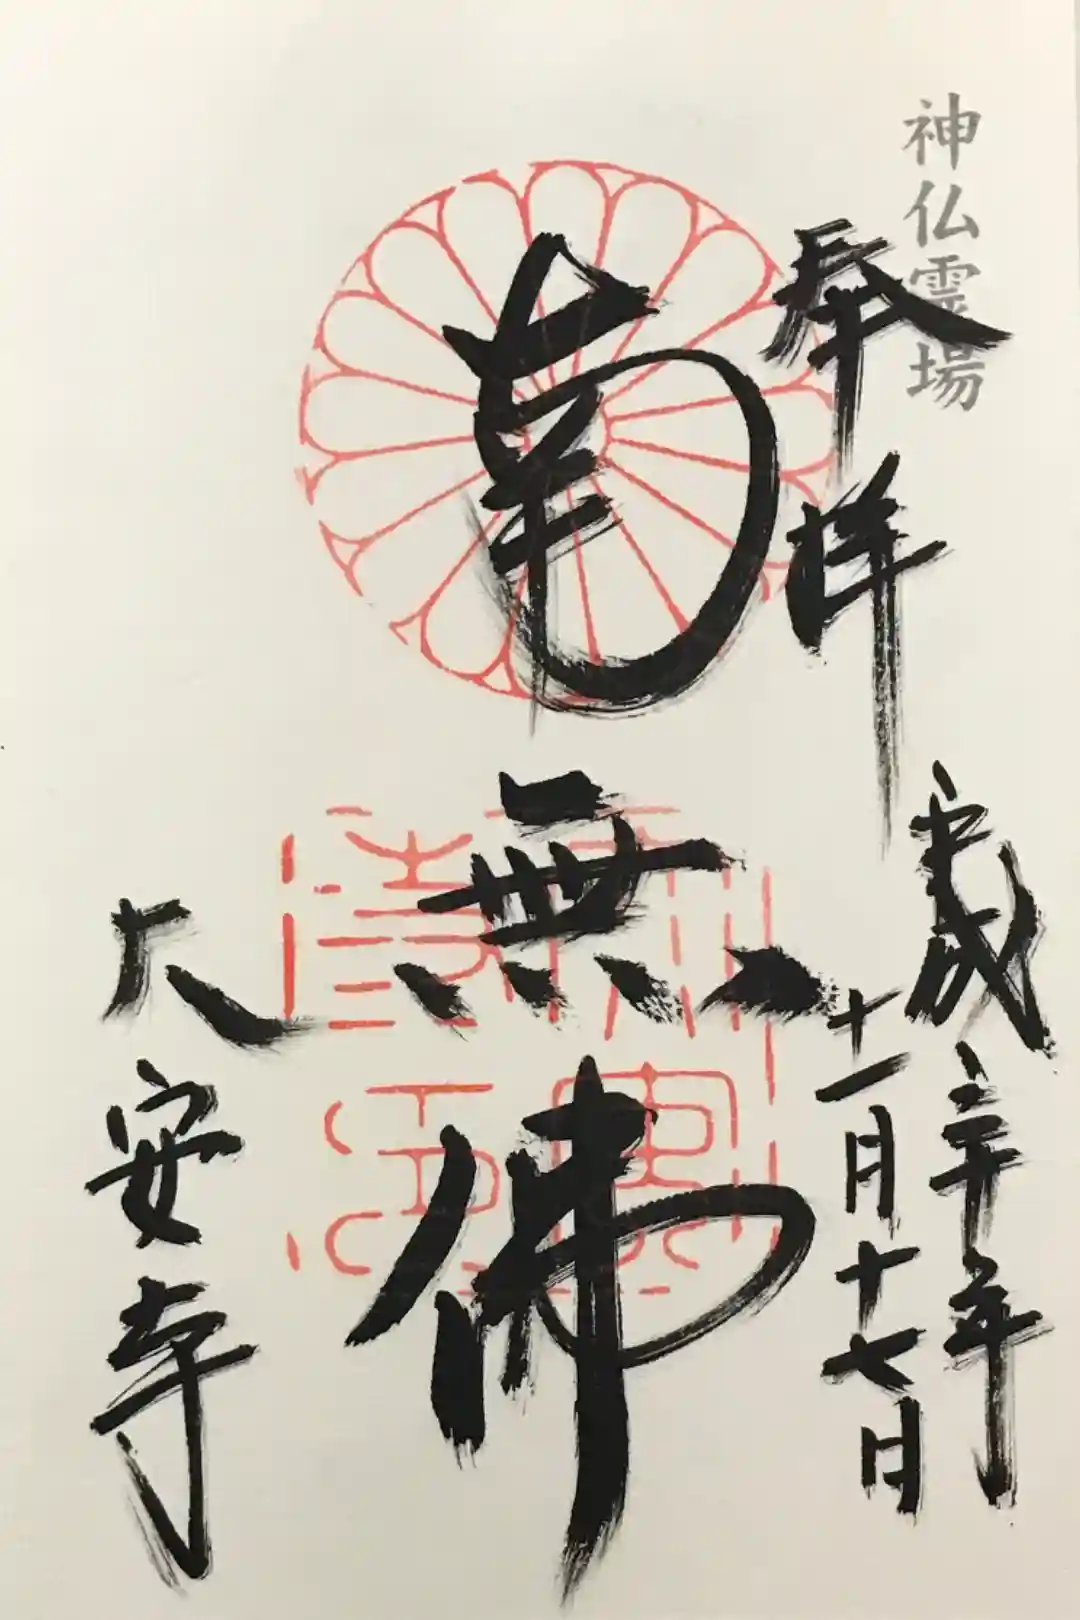 神仏霊場
奉拝
平成三十年
十一月十七日
南無佛
大安寺